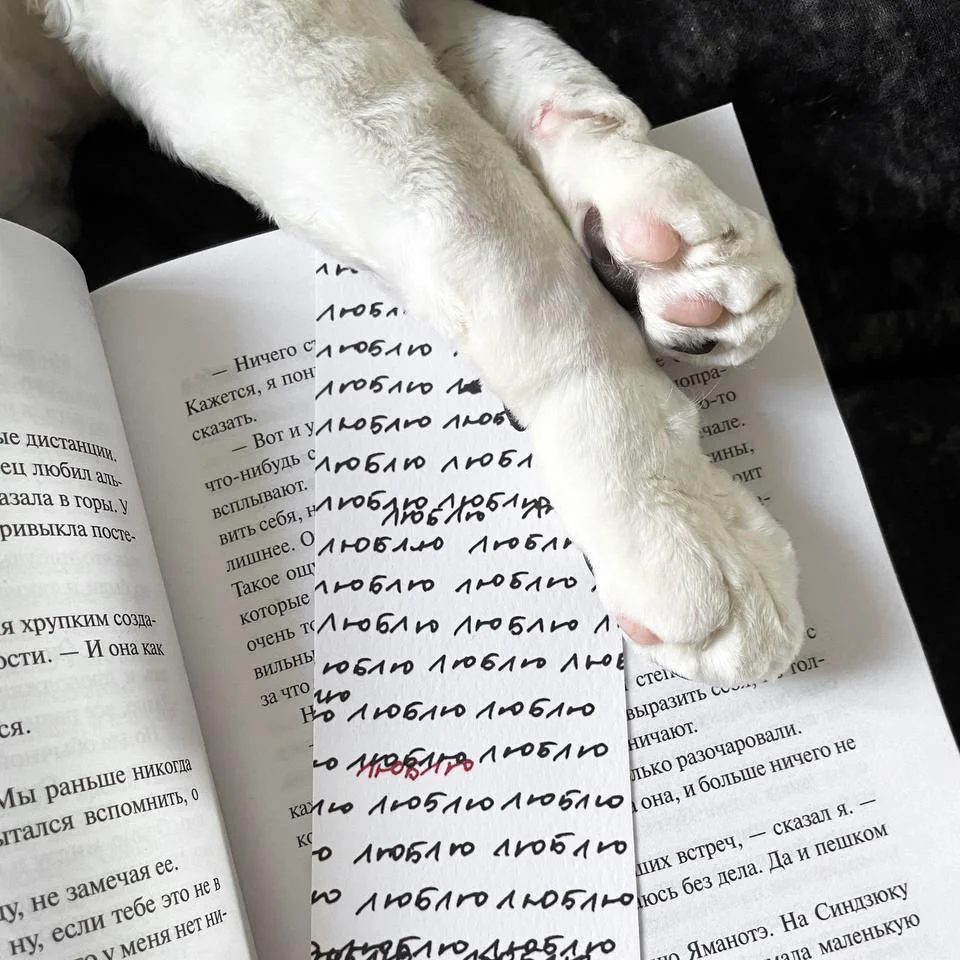 ые дистанции.
ец любил аль-
азала в горы. У
ривыкла посте-
я хрупким созда-
ости. — И она как
ся.
Мы раньше никогда
ытался вспомнить, о
ду, не замечая ее.
ну, если тебе это не в
о у меня нет ни-
— Ничего с
Кажется, я пон
сказать.
— Вот и у
что-нибудь с
всплывают.
вить себя, н
лишнее. О
Такое ощу
которые
очень то
вильны
за что
Н
каж
ко
лю
любл
люблю
люблю
люблю люб
люблю любл
люблю люблю
люблю
люблю любл
люблю люблю
люблю люблю л
юблю люблю люб
лю
ю люблю люблю
ю люблю люблю
люблю
лю люблю люблю
ю люблю люблю
ю люблю люблю
люблю люблю
попра-
о-то
чале.
ины,
рит
с
стен
выразить себя, тол-
ничают.
лько разочаровали.
она, и больше ничего не
ших встреч, — сказал я. —
юсь без дела. Да и пешком
ю Яманотэ. На Синдзюку
мала маленькую